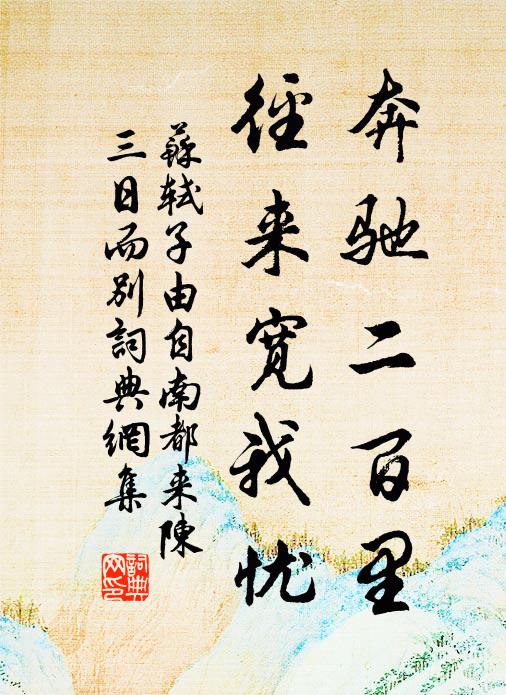 奔驰二百里
径来宽我忧
蘇軾子由自南都来陳
三日而别詞典網集
詞典网印